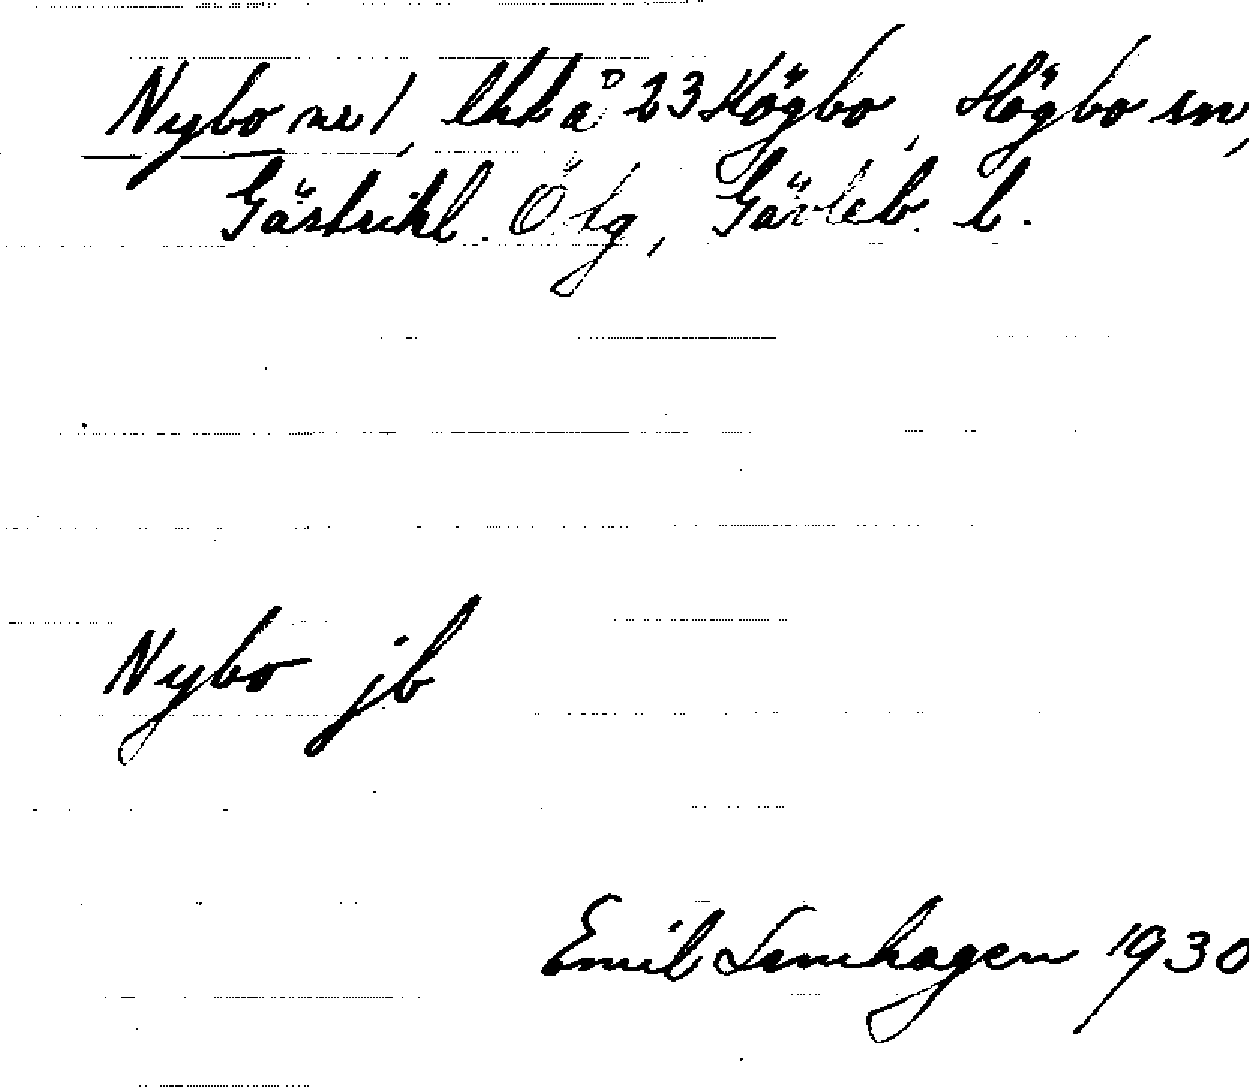 Nybo ne 1, lht å 23 Högbo, Högbo sn,
Gästrikl. Ö. tg, Gävleb. l.
Nybo jb
Emil Linnhagen 1930